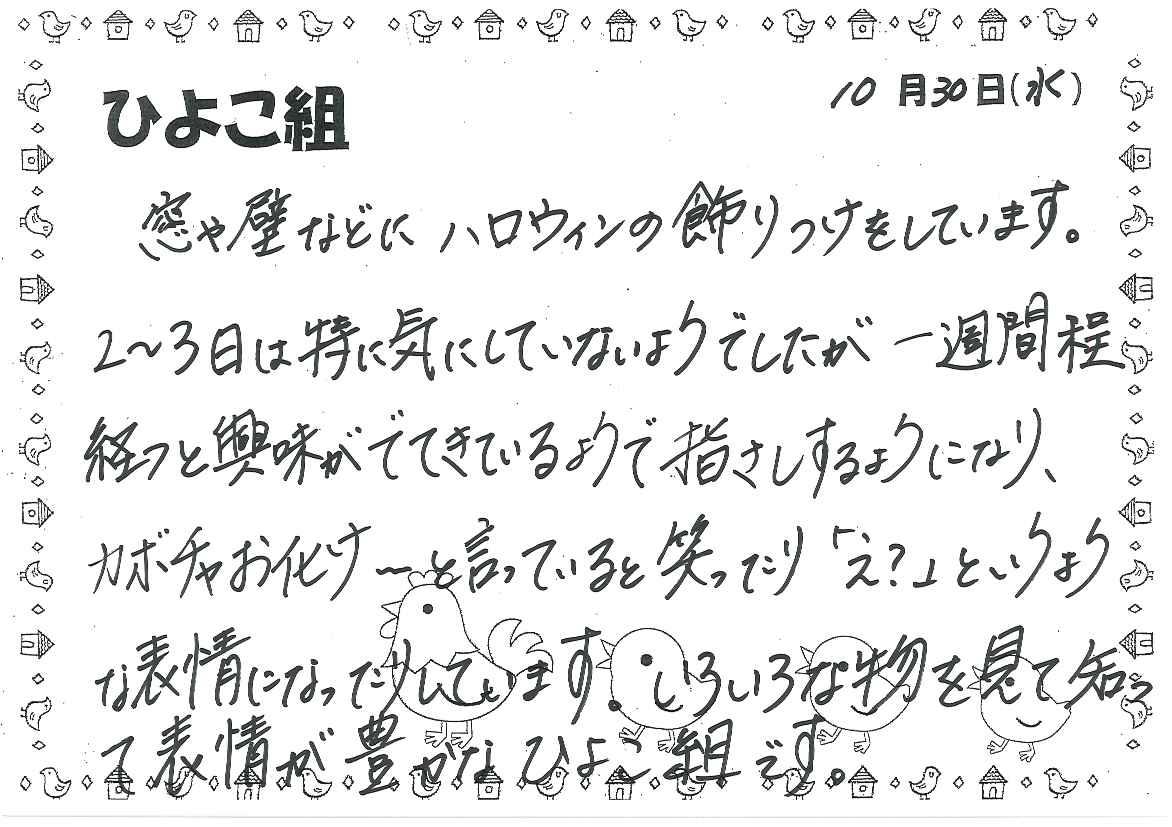 ひよこ組
10月30日(水)
窓や壁などにハロウィンの飾りつけをしています。
2〜3日は特に気にしていないようでしたが一週間程
経つと興味がでてきているようで指さしするようになり、
カボチャお化け〜と言っていると笑ったり「え?」というよう
な表情になったりしています。いろいろな物を見て知っ
て表情が豊かなひよこ組です。